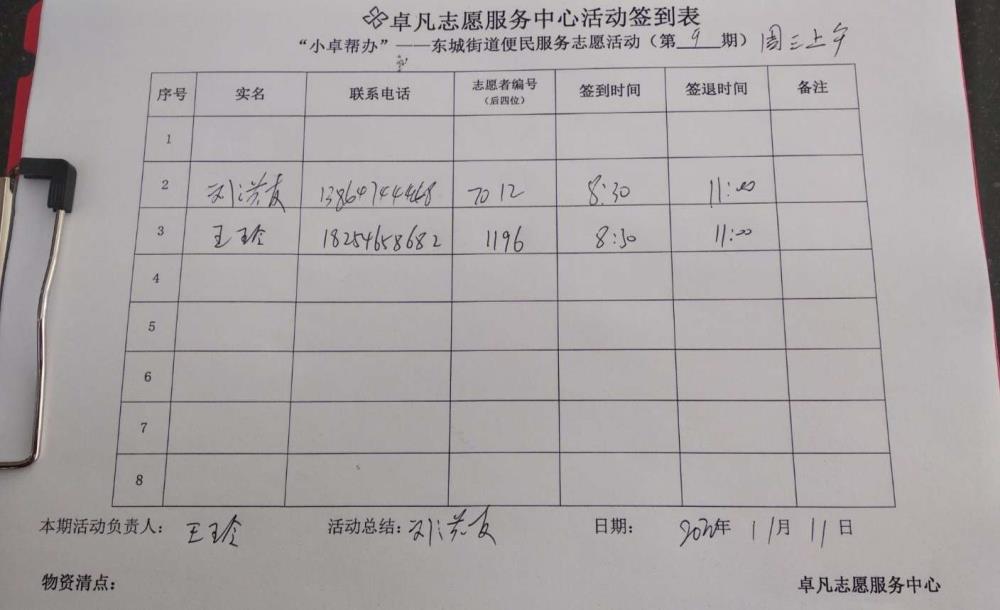 卓凡志愿服务中心活动签到表
“小卓帮办”——东城街道便民服务志愿活动（第 9 期）周三上午
序号 实名 联系电话 志愿者编号（后四位） 签到时间 签退时间 备注
1
2 刘洪友 13864744468 7012 8:30 11:00
3 王玲 18254658682 1196 8:30 11:00
4
5
6
7
8
本期活动负责人： 王玲 活动总结：刘洪友 日期： 2020年 11月 11日
物资清点： 卓凡志愿服务中心